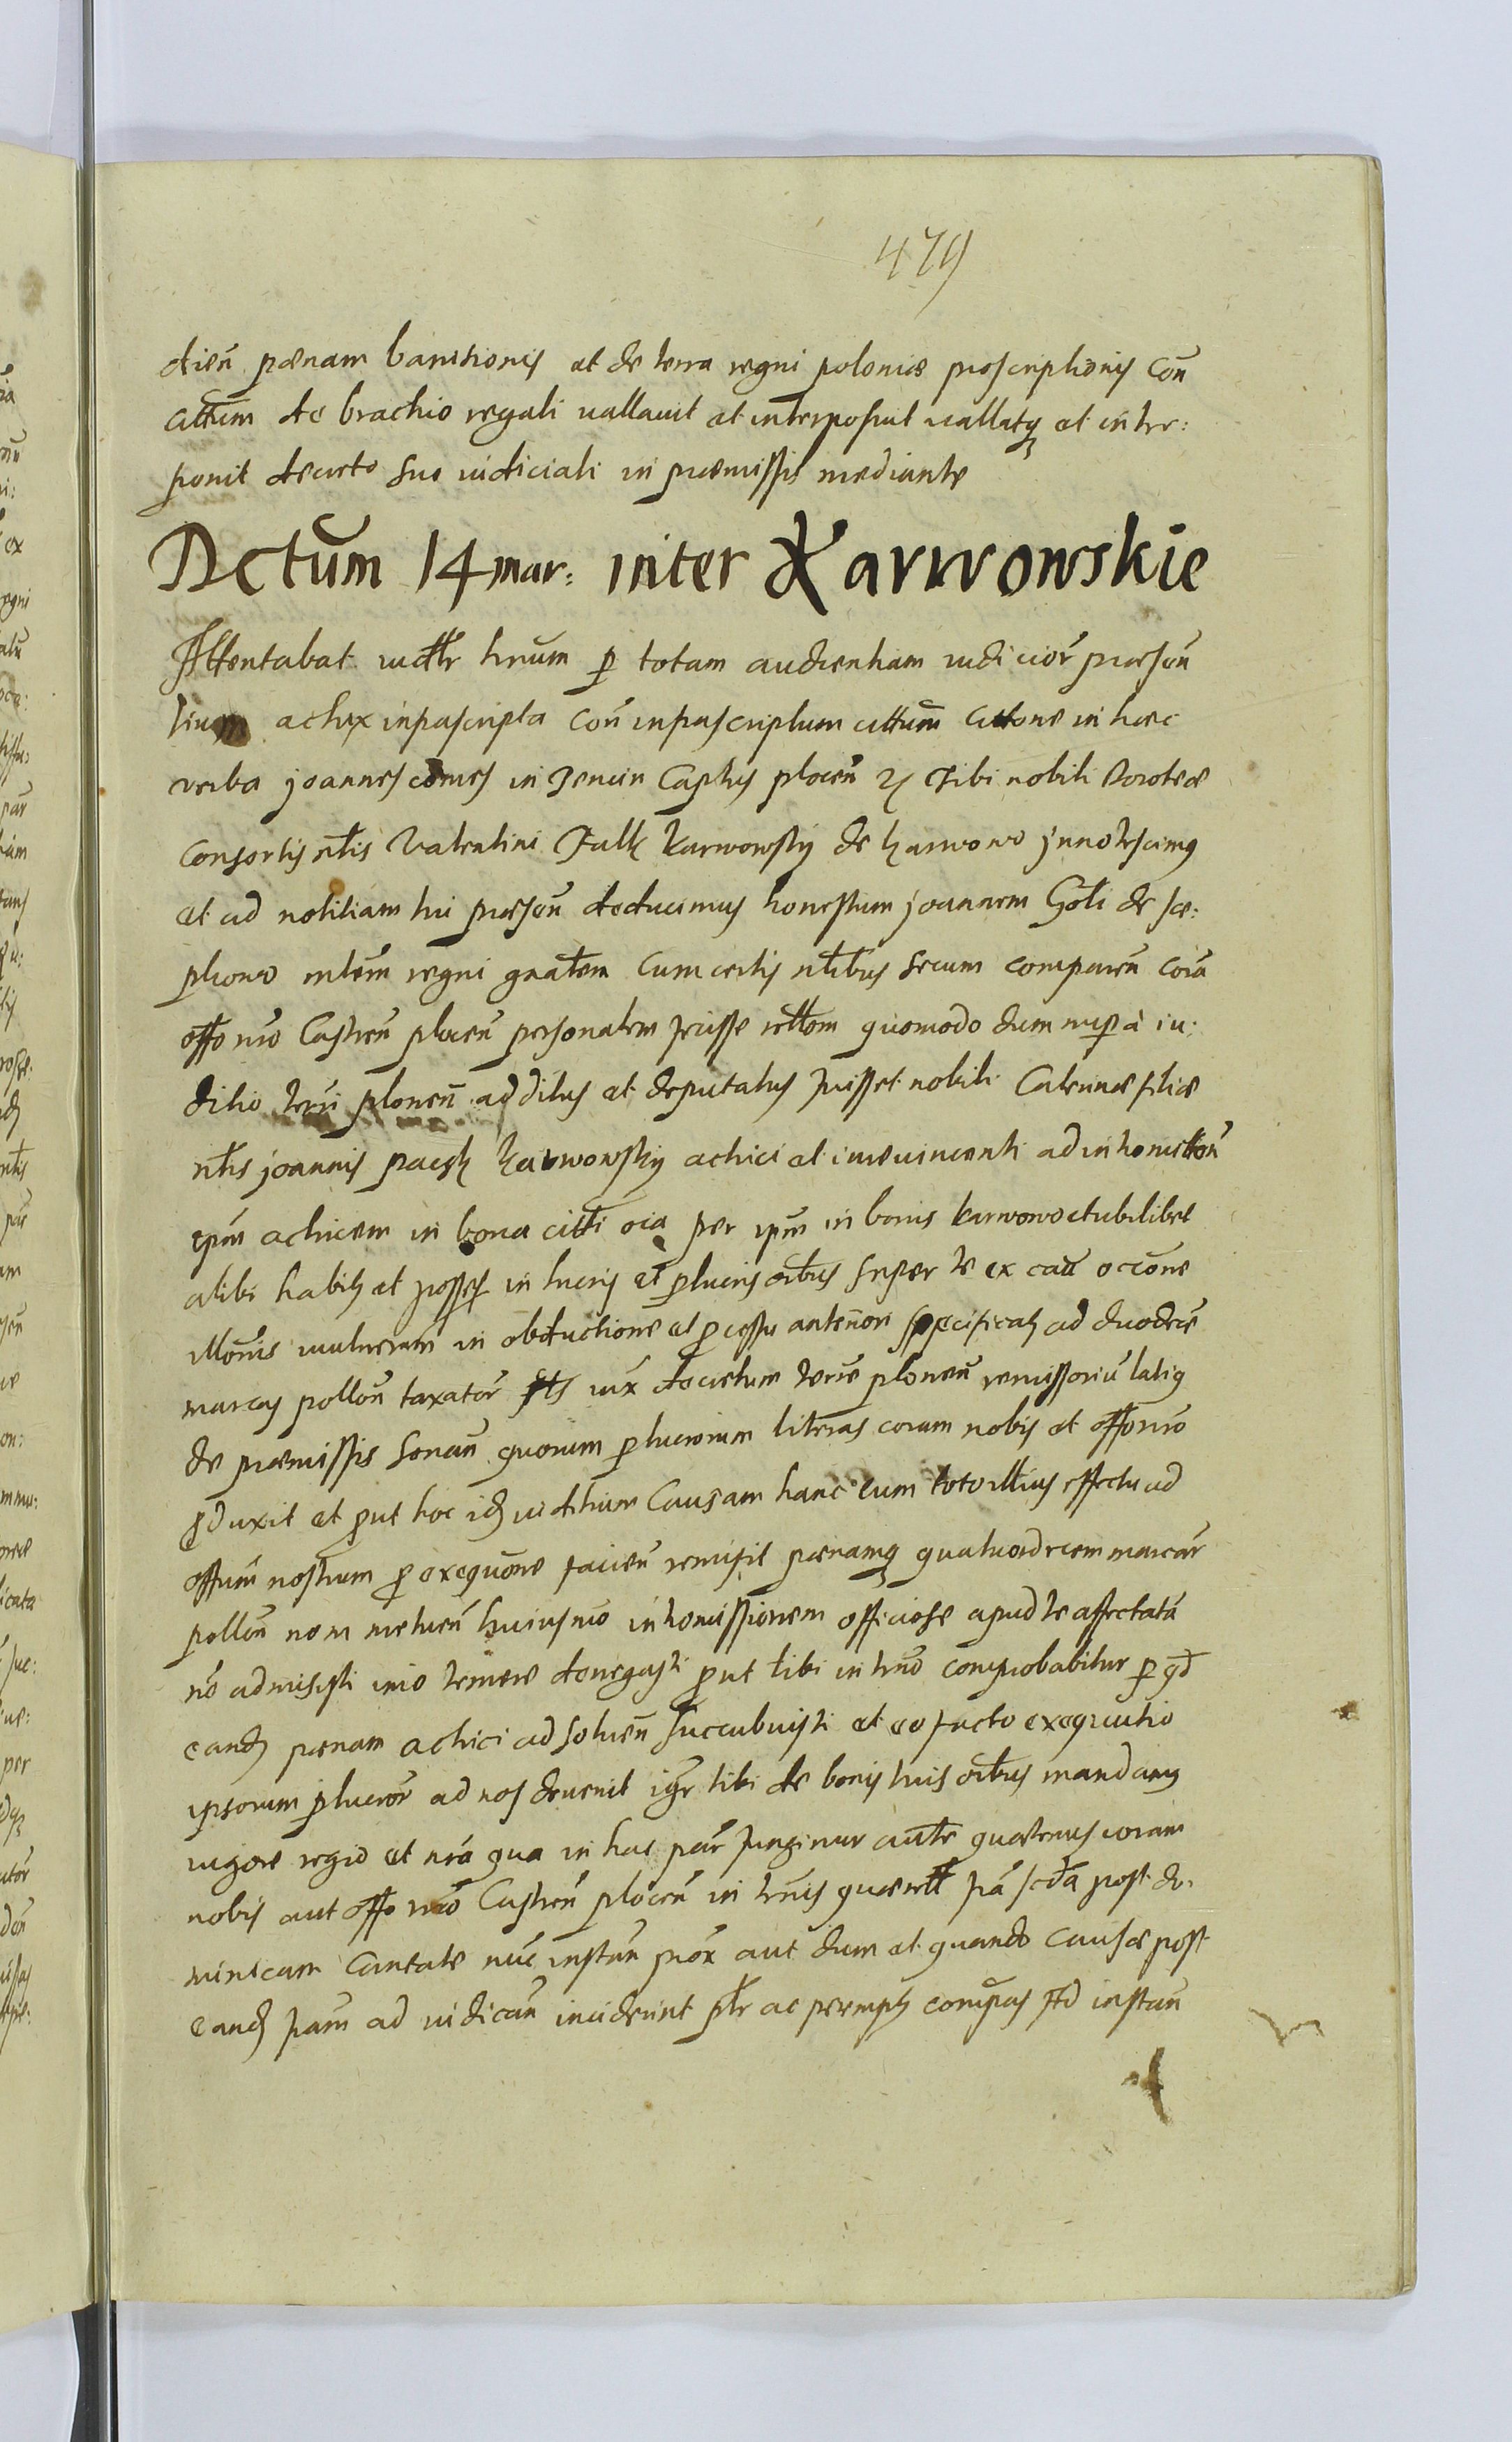 479
dicen̄ pœnam banitionis et de terra regni poloniæ proscriptionis Con̄
cittum de brachio regali uallauit et interposuit uallatq et inter:
ponit decreto suo iudiciali in præmissis mediante
Actum 14 mar: inter Karwowskie
Attentabat iudltr trnum p totam audientiam iudicior̄ præsen̄
tium actrix infrascripta Con̄ infrascriptum cittum Cittone in hæc
verba joannes comes in Tencin Captus plocen̄ Tibi nobili Doroteæ
Consortis nlis Valentini Falk karwowsky de karwowo jnnotescimus
et ad notitiam tui præsen̄ deducimus honestum joannem Goli de
mlem regni gnalem Cum certis nlibus secum comparen̄ corā
offo nr̄o Castren̄ plocen̄ personalem fecisse relltom quomodo dum nup a iu:
ditio terri plonen̄ additus et deputatus fuisset nobili Caterinæ filiæ
nlis joannis karwowsky actrici et iure uincenti ad intromitton̄
ipm̄ actricem in bona citti oia per ipm̄ in bonis karwowo et ubilibet
alibi habits et posses in lucris et plucris oibus super te ex cau ocione
illonis uulnerum in obductione et pcessu anteriori specificats ad duodecē
marcas pollon̄ taxator̄ iux decretum terræ plonen̄ remissoriū latiq
de præmissis sonan̄ quorum plucrorum literas coram nobis et offo nr̄o
pduxit et put hoc idz iuditium Causam hanc cum toto illius effectu ad
offum̄ nostrum p exequone facien̄ remisit pœnamq quatuordecem marcar̄
pollon̄ non metuen̄ huiusmo intromissionem officiose apud te affectatā
nō admisisti imo temere denegasti put tibi in trno comprobabitur p qđ
eandz pœnam actrici ad soluen̄ succubuisti et eo facto exequutio
ipsorum plucror̄ ad nos deuenit igr tibi de bonis tuis oibus mandams
uigore regio et nrā qua in hac par̄ fungimur aute quatenus coram
nobis aut offo nr̄o Castren̄ plocen̄ in trnis quærell fā scđa post do:
minicam Cantate nūc instan̄ prox aut dum et quando Causæ post
eandz fam̄ ad iudican̄ inciderint ptr ac peremptz compas Ad instan̄